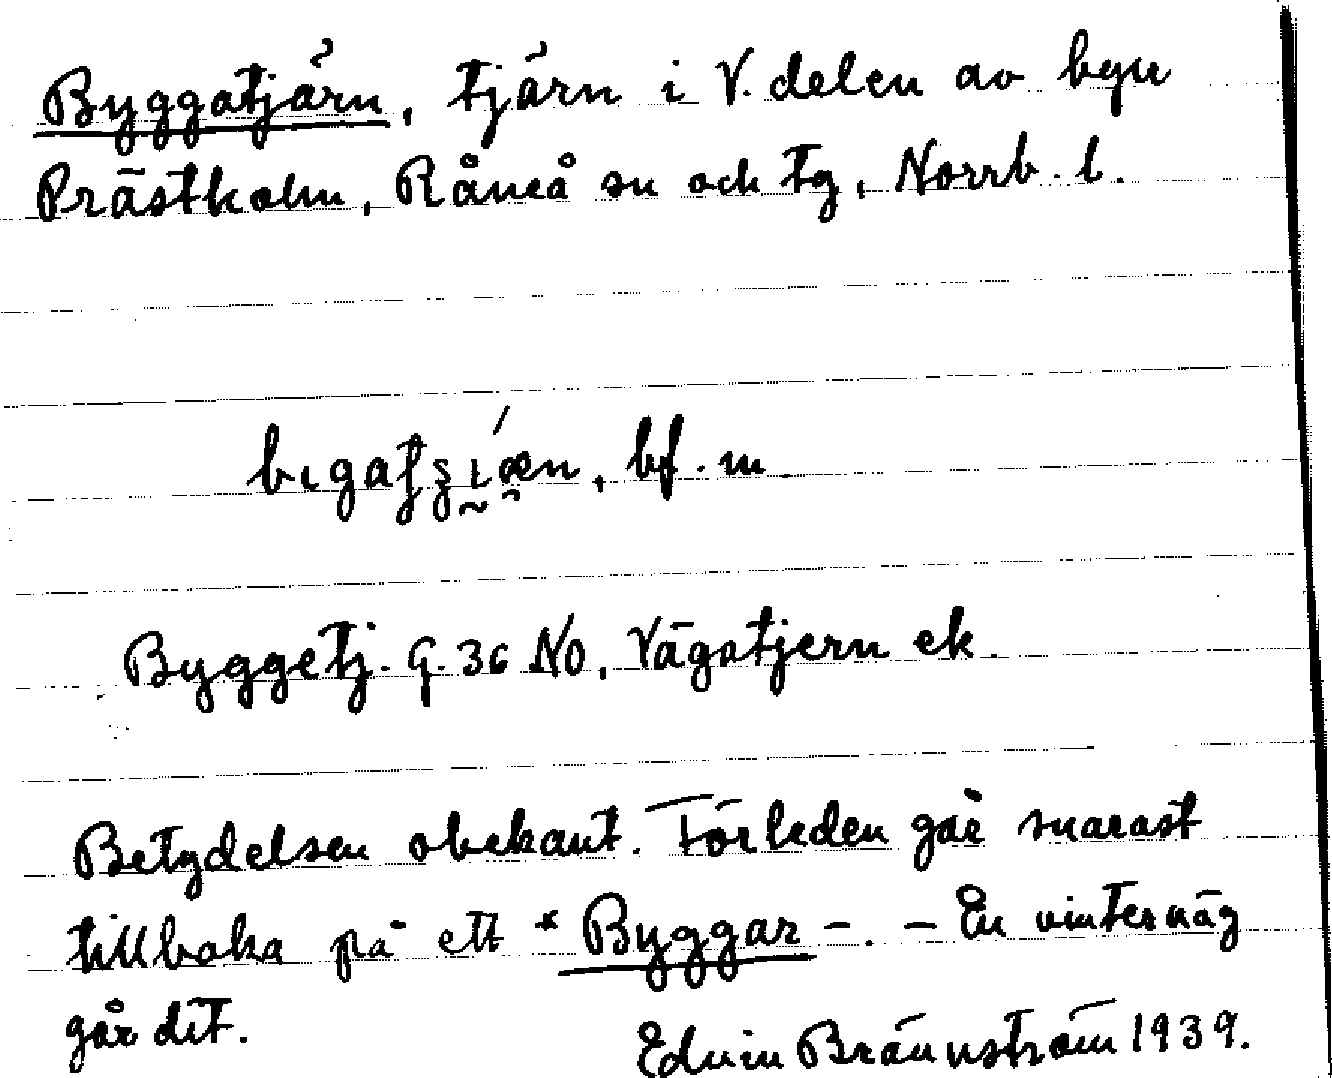 Byggatjärn, tjärn i V. delen av byn
Prästholm, Råneå sn och tg, Norrb. l.
bf. m.
Byggetj. G. 36 NO, Vägatjern ek.
Betydelsen obekant. Förleden går snarast
tillbaka på ett *Byggar-. - En vinterväg
går dit.
Edvin Brännström 1939.